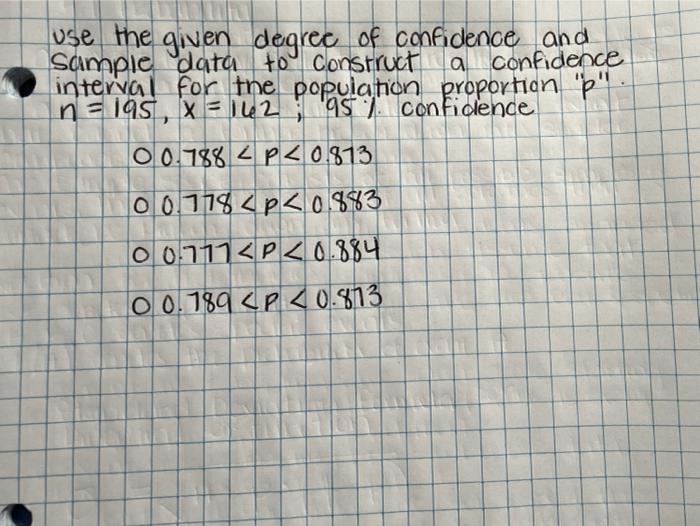 use the given degree of confidence and
sample data to construct a confidence
interval for the population proportion "p".
n = 195, x = 162 ; 95% confidence
O 0.788 < p < 0.873
O 0.778 < p < 0.883
O 0.777 < p < 0.884
O 0.789 < p < 0.873